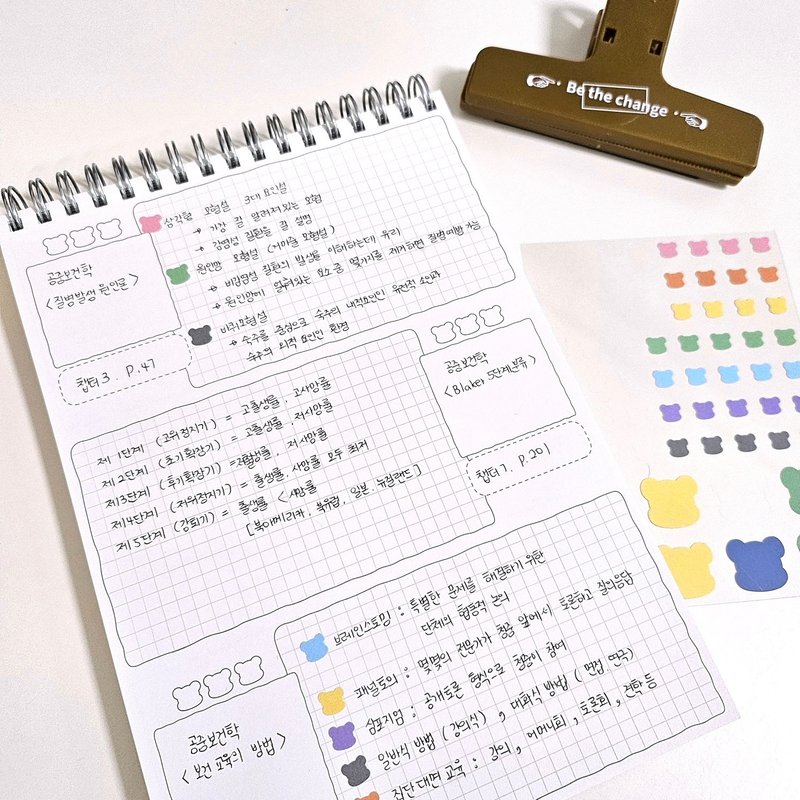 Be the change
삼각형 모형설 3대 요인설
→ 가장 잘 알려져 있는 모형
→ 감염성 질환을 잘 설명
원인망 모형설 (거미줄 모형설)
→ 비감염성 질환의 발생을 이해하는데 유리
→ 원인망에 얽혀있는 요소 중 몇가지를 제거하면 질병예방 가능
바퀴모형설
→ 숙주를 중심으로 숙주의 내적요인인 유전적 소인과
숙주의 외적 요인인 환경
공중보건학
<질병발생 원인론>
챕터 3. P.47
제 1단계 (고위정지기) = 고출생률, 고사망률
제 2단계 (초기확장기) = 고출생률, 저사망률
제 3단계 (후기확장기) = 저출생률, 저사망률
제 4단계 (저위정지기) = 출생률, 사망률 모두 최저
제 5단계 (감퇴기) = 출생률 < 사망률
[북아메리카, 북유럽, 일본, 뉴질랜드]
공중보건학
<Blaker 5단계분류>
챕터 7. P.201
브레인스토밍 : 특별한 문제를 해결하기 위한
단체의 협동적 논의
패널토의 : 몇몇의 전문가가 청중 앞에서 토론하고 질의응답
심포지엄 : 공개토론 형식으로 청중이 참여
일반식 방법 (강의식), 대화식 방법 (면접 연극)
집단 대면 교육 : 강의, 어머니회, 토론회, 견학 등
공중보건학
<보건 교육의 방법>